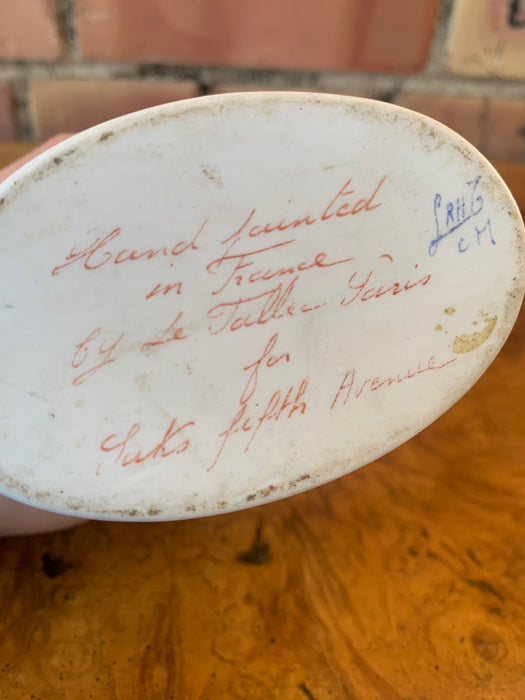 Hand painted
in France
by Le Tallec Paris
for
Saks fifth Avenue
CM